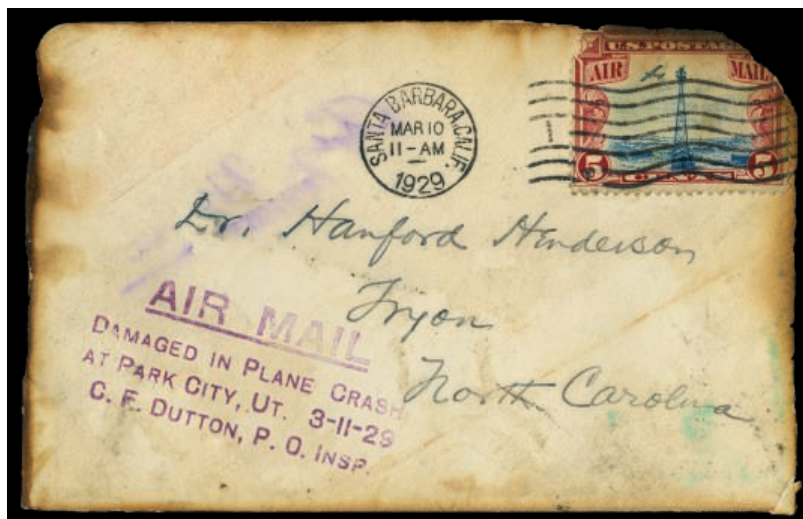 U.S. POSTAGE
AIR MAIL
5 5
SANTA BARBARA, CALIF.
MAR 10
11-AM
1929
Dr. Hanford Henderson
Tryon
North Carolina
AIR MAIL
DAMAGED IN PLANE CRASH
AT PARK CITY, UT. 3-11-29
C. F. DUTTON, P. O. INSP.